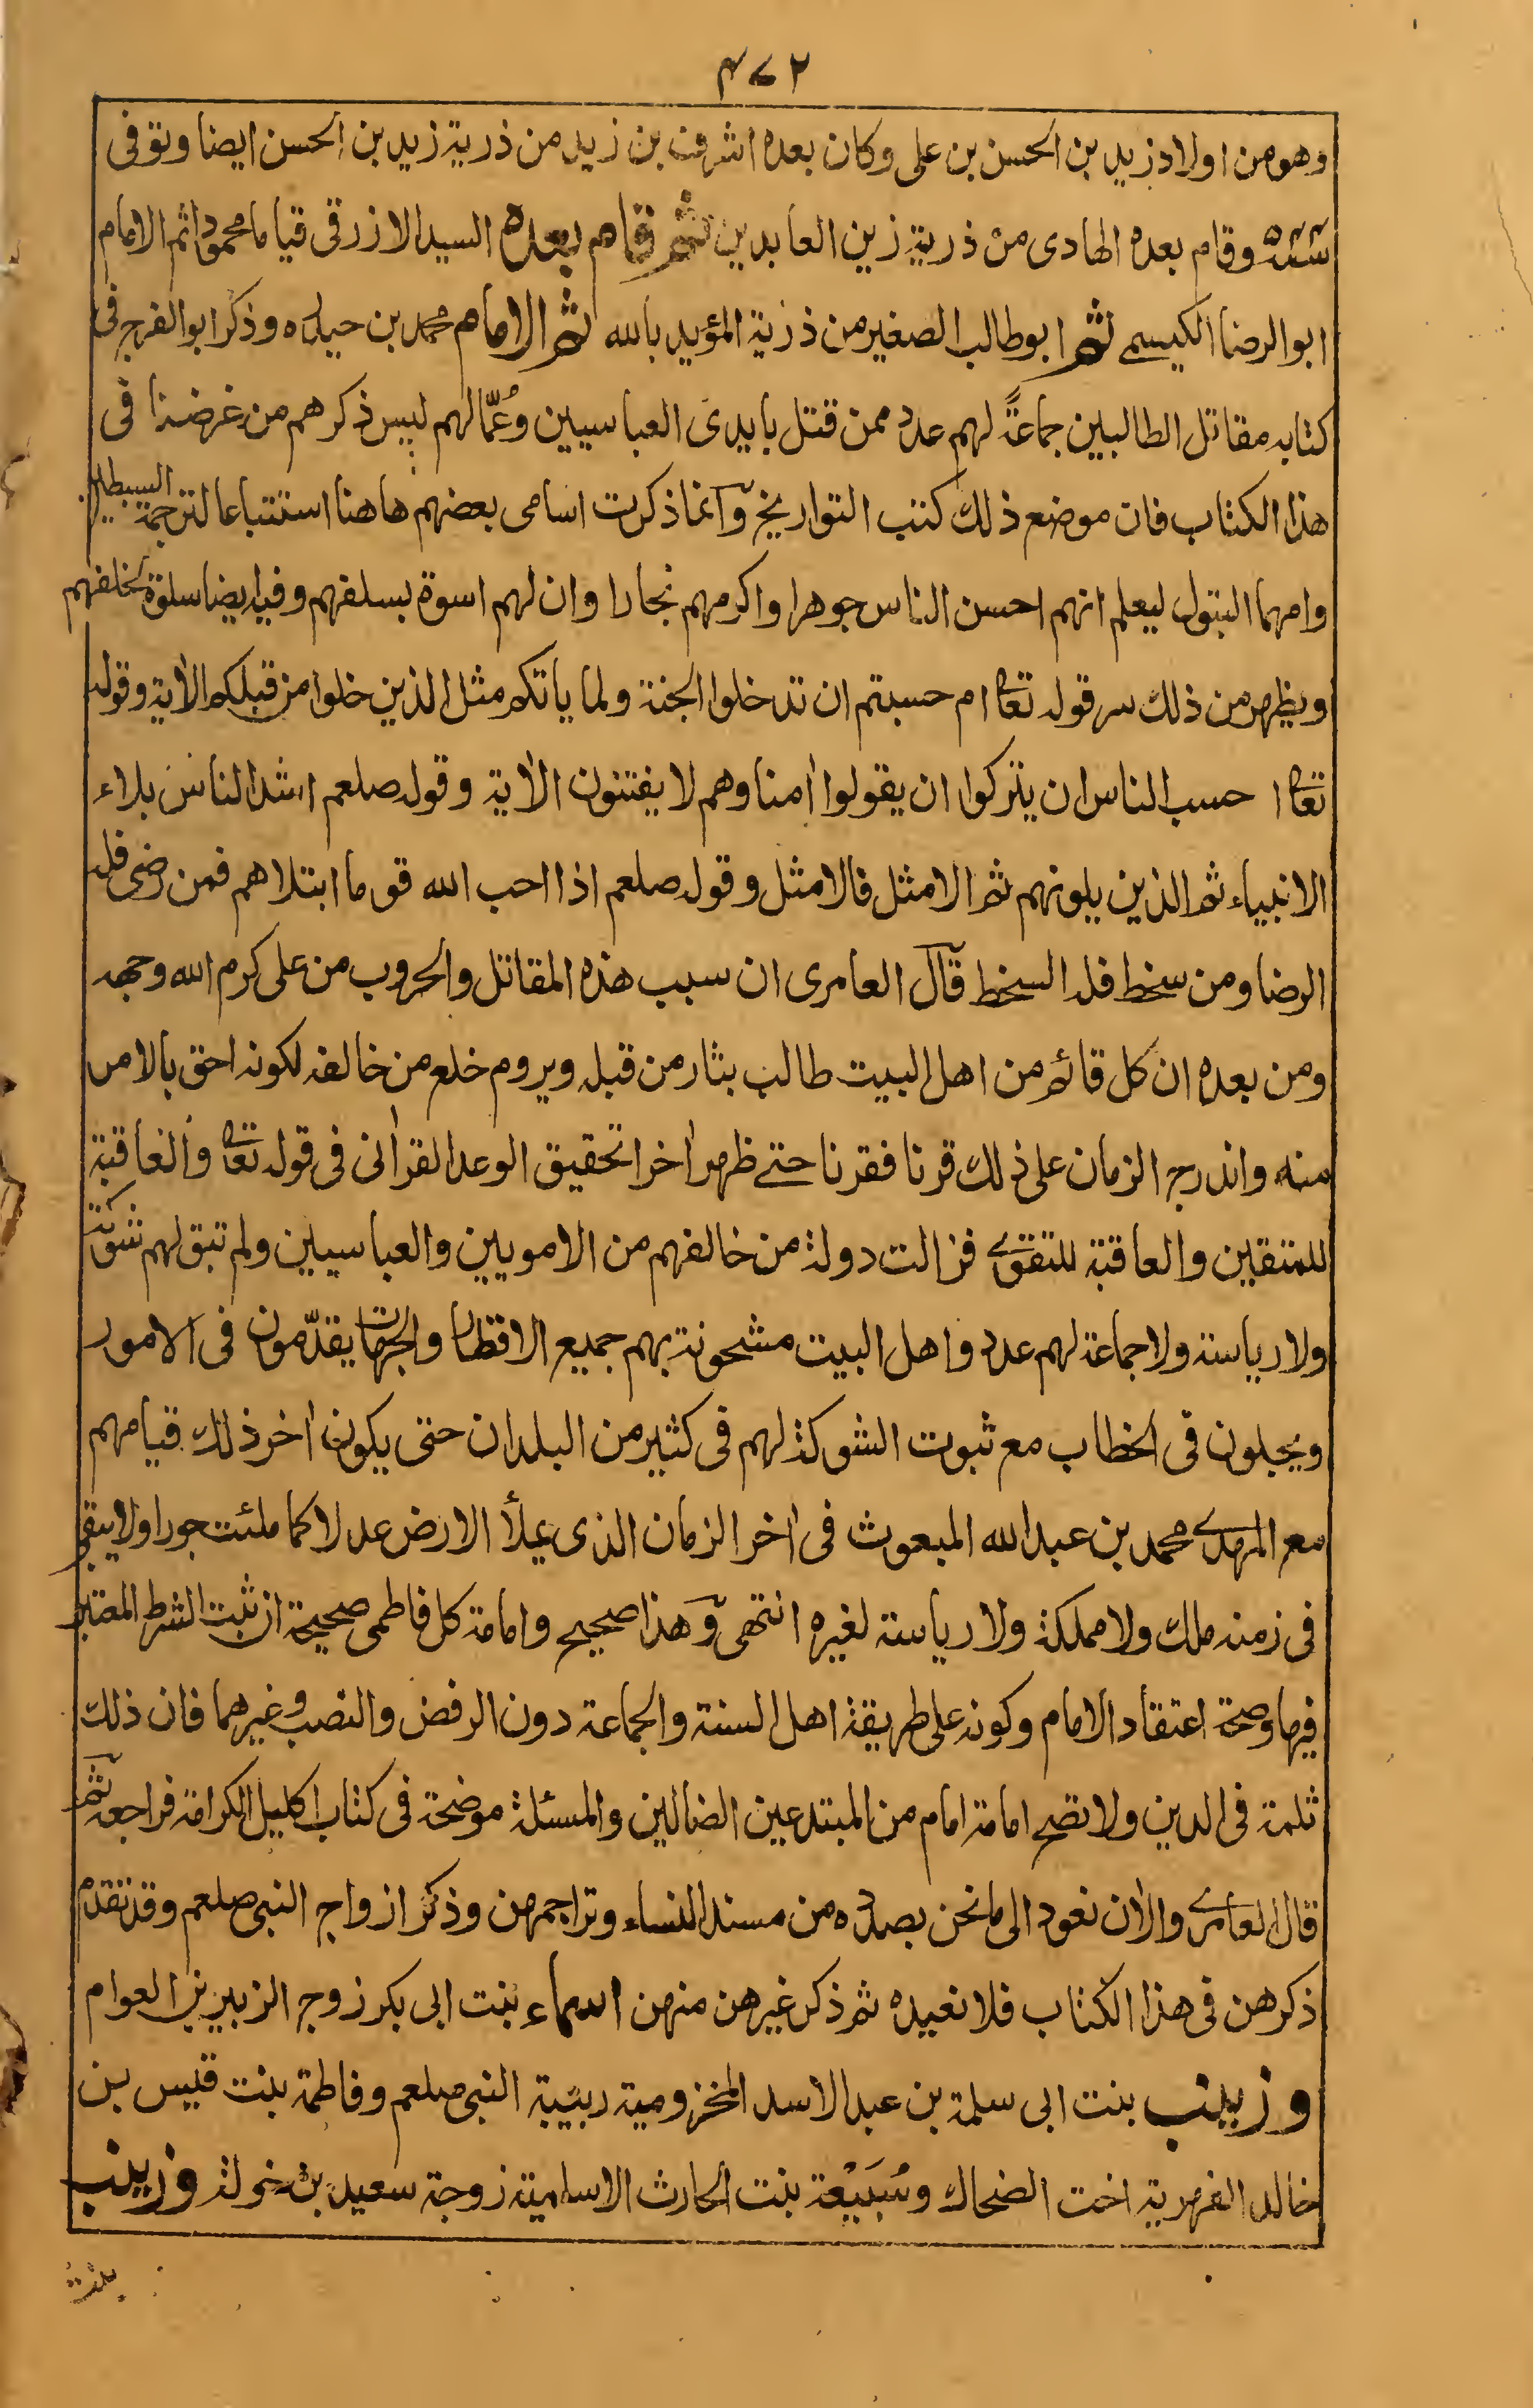 ٤٧٢
وهو من اولاد زيد بن الحسن بن على وكان بعده اشرف بن زيد من ذرية زيد بن الحسن ايضا وتوفى
وقام بعده الهادى من ذرية زين العابدين ثم قام بعده السيد الازرقى قياما محمودا ثم الامام
ابو الرضا الكيسمى ثم ابو طالب الصغير من ذرية المؤيد بالله ثم الامام محمد بن حيدره وذكر ابو الفرج فى
كتابه مقاتل الطالبيين جماعةً لهم عدد ممن قتل بايدى العباسيين وعُمّالهم ليس ذكرهم من غرضنا فى
هذا الكتاب فان موضع ذلك كتب التواريخ وانما ذكرت اسامى بعضهم هاهنا استتباعا لترجمة السبطين
وامهما البتول ليعلم انهم احسن الناس جوهرا واكرمهم نجارا وان لهم اسوة بسلفهم وفيه ايضا سلوة لخلفهم
ويظهر من ذلك سر قوله تعا ام حسبتم ان تدخلوا الجنة ولما ياتكم مثل الذين خلوا من قبلكم الاٰية وقوله
تعا احسب الناس ان يتركوا ان يقولوا اٰمنا وهم لا يفتنون الاٰية وقوله صلعم اشد الناس بلاء
الانبياء ثم الذين يلونهم ثم الامثل فالامثل وقوله صلعم اذا احب الله قوما ابتلاهم فمن رضى فله
الرضا ومن سخط فله السخط قال العامرى ان سبب هذه المقاتل والحروب من على كرم الله وجهه
ومن بعده ان كل قائم من اهل البيت طالب بثار من قبله ويروم خلع من خالفه لكونه احق بالامر
منه واندرج الزمان على ذلك قرنا فقرنا حتے ظهر اٰخرا تحقيق الوعد القراٰنى فى قوله تعا والعاقبة
للمتقين والعاقبة للتقوے فزالت دولة من خالفهم من الامويين والعباسيين ولم تبق لهم شوكة
ولا رياسة ولا جماعة لهم عدد واهل البيت مشحونة بهم جميع الاقطار والجهات يقدّمون فى الامور
ويجلون فى الخطاب مع ثبوت الشوكة لهم فى كثير من البلدان حتى يكون اٰخر ذلك قيامهم
مع المهدے محمد بن عبد الله المبعوث فى اٰخر الزمان الذى يملأ الارض عدلا كما ملئت جورا ولا يبقى
فى زمنه ملك ولا مملكة ولا رياسة لغيره انتهى وهذا صحيح وامامة كل فاطمى صحيحة ان ثبت الشرط المعتبر
فيها وصحة اعتقاد الامام وكونه على طريقة اهل السنة والجماعة دون الرفض والنصب وغيرهما فان ذلك
ثلمة فى الدين ولا تصح امامة امام من المبتدعين الضالين والمسئلة موضحة فى كتاب اكليل الكرامة فراجعه ثم
قال العامرے والاٰن نعود الى ما نحن بصدده من مسند النساء وتراجمهن وذكر ازواج النبى صلعم وقد تقدم
ذكرهن فى هذا الكتاب فلا نعيده ثم ذكر غيرهن منهن اسماء بنت ابى بكر زوج الزبير بن العوام
وزينب بنت ابى سلمة بن عبد الاسد المخزومية ربيبة النبى صلعم وفاطمة بنت قيس بن
خالد الفهرية اخت الضحاك وسُبَيْعة بنت الحارث الاسلمية زوجة سعيد بن خولة وزينب
بنت